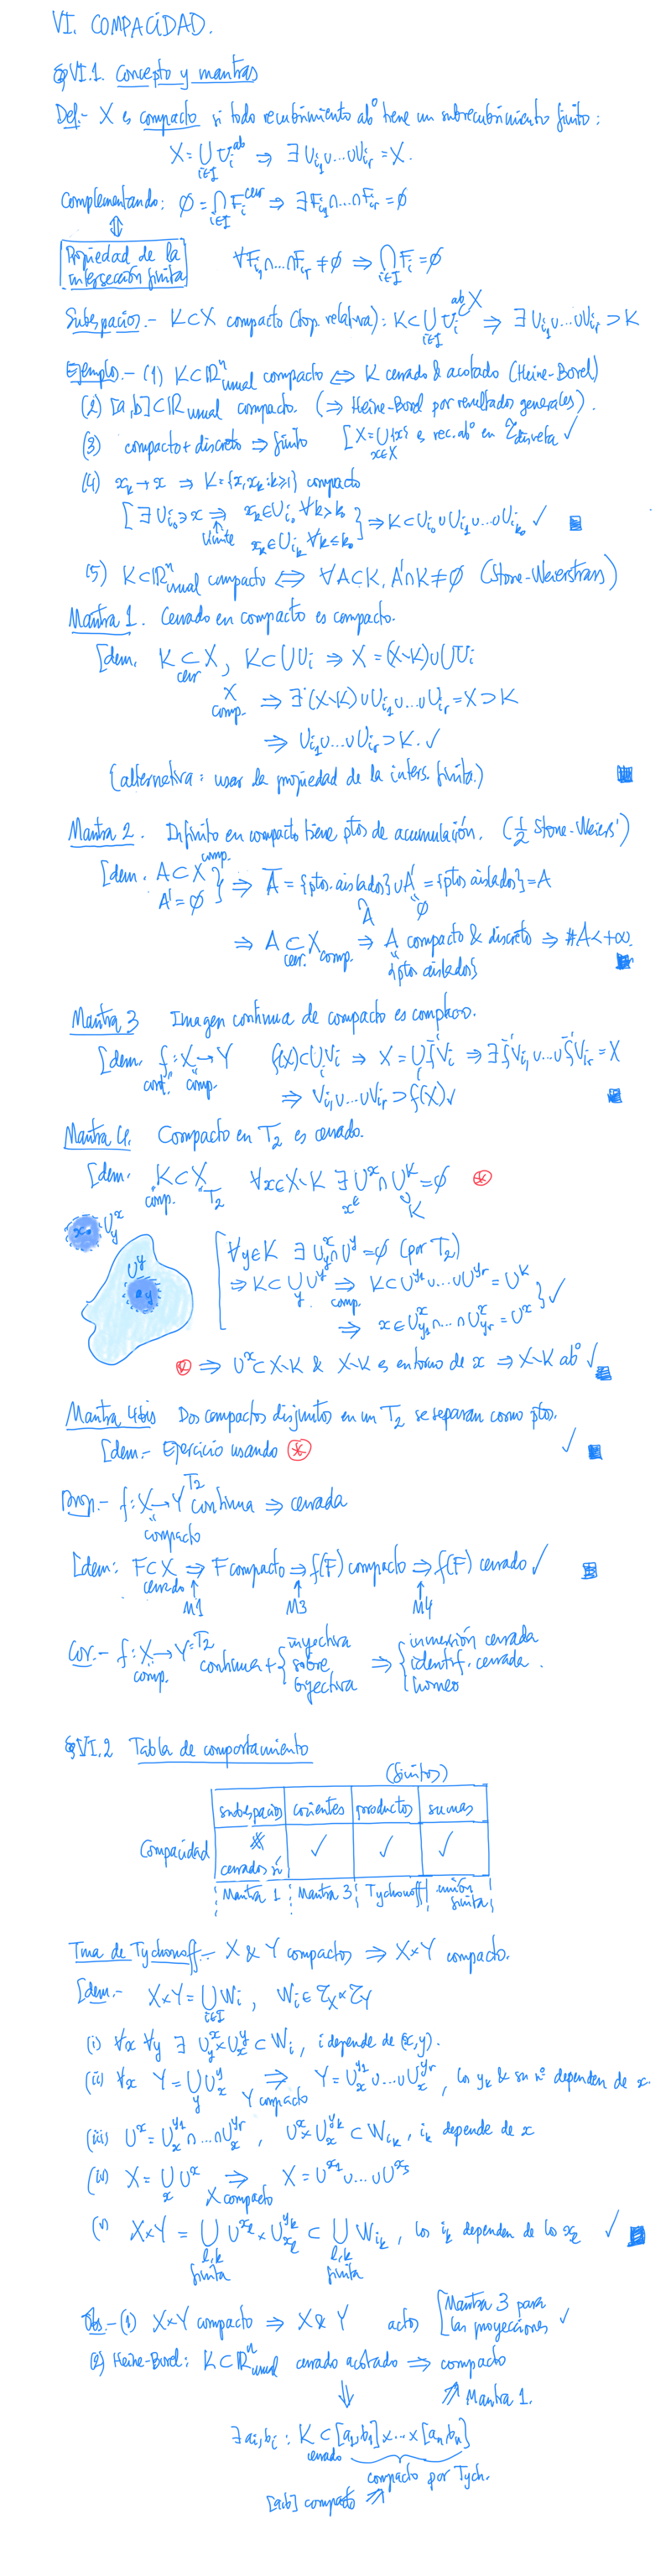 VI. COMPACIDAD.
§VI.1. Concepto y mantras
Def.- X es compacto si todo recubrimiento abº tiene un subrecubrimiento finito:
X = ⋃_{i∈I} U_i^{ab} ⇒ ∃ U_{i_1}∪...∪U_{i_r} = X.
Complementando: ∅ = ⋂_{i∈I} F_i^{cerr} ⇒ ∃ F_{i_1}∩...∩F_{i_r} = ∅
⇕
Propiedad de la intersección finita
∀F_{i_1}∩...∩F_{i_r} ≠ ∅ ⇒ ⋂_{i∈I} F_i = ∅
Subespacios.- K⊂X compacto (top. relativa): K⊂⋃_{i∈I} U_i^{ab ⊂X} ⇒ ∃ U_{i_1}∪...∪U_{i_r} ⊃ K
Ejemplos.- (1) K⊂ℝⁿ_{usual} compacto ⇔ K cerrado & acotado (Heine-Borel)
(2) [a,b]⊂ℝ usual compacto. (⇒ Heine-Borel por resultados generales).
(3) compacto + discreto ⇒ finito [X=⋃_{x∈X}{x} es rec. abº en τ_{discreta} ✓
(4) x_k→x ⇒ K={x,x_k: k≥1} compacto
[∃ U_{i_0}∋x ⇒ x_k∈U_{i_0} ∀k>k_0
↑ límite x_k∈U_{i_k} ∀k≤k_0 } ⇒ K⊂U_{i_0}∪U_{i_1}∪...∪U_{i_{k_0}} ✓
(5) K⊂ℝⁿ_{usual} compacto ⇔ ∀A⊂K, A'∩K≠∅ (Stone-Weierstrass)
Mantra 1. Cerrado en compacto es compacto.
[dem. K ⊂_{cerr} X, K⊂⋃U_i ⇒ X = (X∖K)∪⋃U_i
X comp. ⇒ ∃ (X∖K)∪U_{i_1}∪...∪U_{i_r} = X⊃K
⇒ U_{i_1}∪...∪U_{i_r}⊃K. ✓
(alternativa: usar la propiedad de la inters. finita.)
Mantra 2. Infinito en compacto tiene ptos de acumulación. (½ Stone-Weiers')
[dem. A⊂X^{comp.} A'=∅ } ⇒ Ā = {ptos. aislados}∪A' = {ptos aislados} = A
∩ A " ∅
⇒ A ⊂_{cerr.} X_{comp.} ⇒ A compacto & discreto ⇒ #A<+∞
" {ptos aislados}
Mantra 3 Imagen continua de compacto es compacto.
[dem. f: X→Y f(X)⊂⋃_i V_i ⇒ X=⋃_i f⁻¹V_i ⇒ ∃ f⁻¹V_{i_1}∪...∪f⁻¹V_{i_r} = X
cont." comp. ⇒ V_{i_1}∪...∪V_{i_r}⊃f(X) ✓
Mantra 4. Compacto en T₂ es cerrado.
[dem. K⊂X ∀x∈X∖K ∃ U^x∩U^K=∅ ⊛
comp. T₂ x∈ ∪ K
x. U_y^x
U^y
.y
[∀y∈K ∃ U_y^x∩U^y=∅ (por T₂)
⇒ K⊂⋃_y U^y ⇒_{comp.} K⊂U^{y_1}∪...∪U^{y_r} = U^K
⇒ x∈U_{y_1}^x∩...∩U_{y_r}^x = U^x } ✓
⊛ ⇒ U^x⊂X∖K & X∖K es entorno de x ⇒ X∖K abº ✓
Mantra 4bis Dos compactos disjuntos en un T₂ se separan como ptos.
[dem.- Ejercicio usando ⊛ ✓
Prop.- f: X→Y^{T₂} continua ⇒ cerrada
" compacto
[dem: F⊂X ⇒ F compacto ⇒ f(F) compacto ⇒ f(F) cerrado ✓
cerrado ↑ ↑ ↑
M1 M3 M4
Cor.- f: X→Y=T₂ continua + { inyectiva sobre biyectiva ⇒ { inmersión cerrada identif. cerrada. homeo
comp.
§VI.2 Tabla de comportamiento
(finitos)
subespacios cocientes productos sumas
Compacidad cerrados sí ✓ ✓ ✓
Mantra 1 Mantra 3 Tychonoff unión finita
Tma de Tychonoff.- X & Y compactos ⇒ X×Y compacto.
[dem.- X×Y = ⋃_{i∈I} W_i, W_i∈τ_X×τ_Y
(i) ∀x ∀y ∃ U_y^x×U_x^y⊂W_i, i depende de (x,y).
(ii) ∀x Y=⋃_y U_x^y ⇒_{Y compacto} Y=U_x^{y_1}∪...∪U_x^{y_r}, los y_k & su nº dependen de x.
(iii) U^x = U_x^{y_1}∩...∩U_x^{y_r}, U^x×U_x^{y_k}⊂W_{i_k}, i_k depende de x
(iv) X=⋃_x U^x ⇒_{X compacto} X=U^{x_1}∪...∪U^{x_s}
(v) X×Y = ⋃_{l,k finita} U^{x_l}×U_{x_l}^{y_k} ⊂ ⋃_{l,k finita} W_{i_k}, los i_k dependen de los x_l ✓
Obs.- (1) X×Y compacto ⇒ X & Y actos [Mantra 3 para las proyecciones ✓
(2) Heine-Borel: K⊂ℝⁿ_{usual} cerrado acotado ⇒ compacto
⇓ ⇗ Mantra 1.
∃ a_i, b_i: K ⊂_{cerrado} [a_1,b_1]×...×[a_n,b_n]
compacto por Tych.
[a,b] compacto ⇗